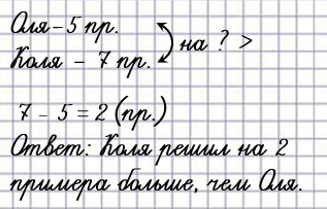 Оля – 5 пр.
на ? >
Коля – 7 пр.
7 – 5 = 2 (пр.)
Ответ: Коля решил на 2
примера больше, чем Оля.